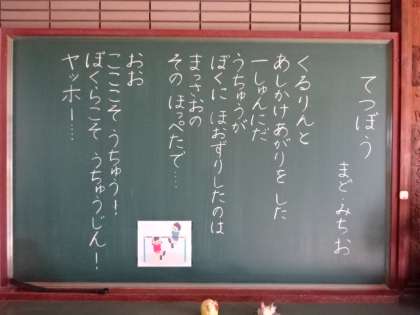 てつぼう
まど・みちお
くるりんと
あしかけあがりを した
一しゅんにだ
うちゅうが
ぼくに ほおずりしたのは
まっさおの
その ほっぺたで…
おお
こここそ うちゅう！
ぼくらこそ うちゅうじん！
ヤッホー…